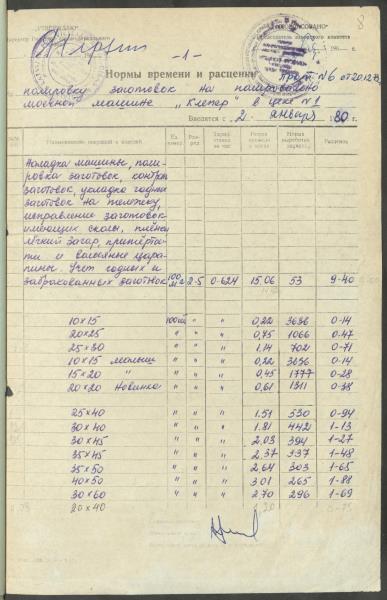 „УТВЕРЖДАЮ"
8
-1-
Нормы времени и расценки
прот. №6 от 20.12.79
полировку заготовок на полировально
моечной машине „Клепер" в цехе №1
Вводятся с 2 января 1980 г.
Наименование операций и изделий
Расценка
Наладка машины, поли-
ровка заготовок, контроль
заготовок, укладка годных
заготовок на тележку,
исправление заготовок
имеющих сколы, плёны
лёгкий загар, притёрто-
ти и волосяные цара-
пины. Учет годных и
забракованных заготовок 100 м2 2-5 0-624 15.06 53 9-40
10×15 100 шт " " 0,22 3636 0-14
20×25 " " " 0,75 1066 0-47
25×30 " " " 1,14 702 0-71
10×15 малыш " " " 0,22 3636 0-14
15×20 " " " " 0,45 1777 0-28
20×20 Новинка " " " 0,61 1311 0-38
25×40 " " " 1,51 530 0-94
30×40 " " " 1,81 442 1-13
30×45 " " " 2,03 394 1-27
35×45 " " " 2,37 337 1-48
35×50 " " " 2,64 303 1-65
40×50 " " " 3,01 265 1-88
30×60 " " " 2,70 296 1-69
20×40